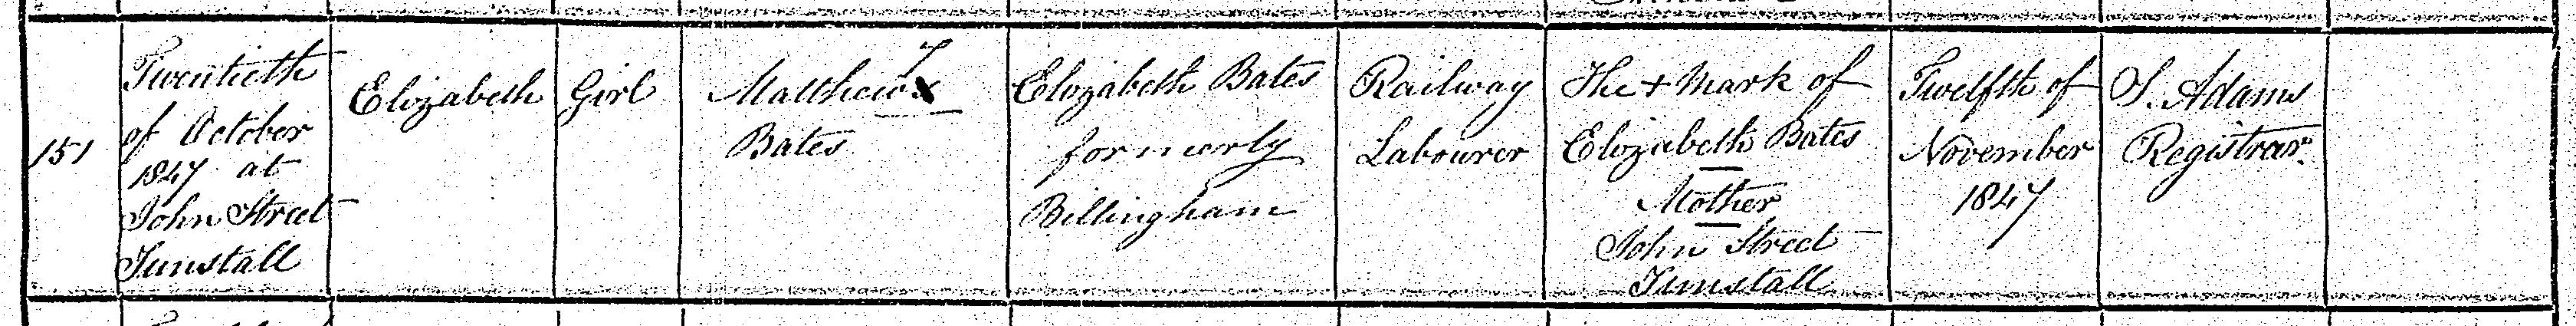 151
Twentieth
of October
1847 at
John Street
Tunstall
Elizabeth
Girl
Matthew
Bates
Elizabeth Bates
formerly
Billingham
Railway
Labourer
The + Mark of
Elizabeth Bates
Mother
John Street
Tunstall
Twelfth of
November
1847
S. Adams
Registrar.